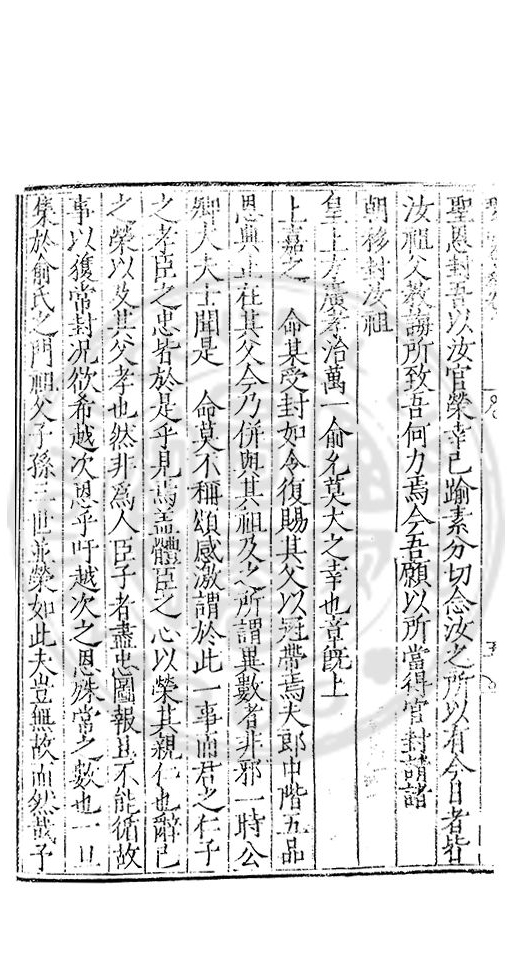 聖恩封吾以汝官榮幸已踰素分切念汝之所以有今日者皆
汝祖父教誨所致吾何力焉今吾願以所當得官封請諸
朝移封汝祖
皇上方廣孝治萬一俞允莫大之幸也章旣上
上嘉之　命某受封如令復賜其父以冠帶焉夫郎中階五品
恩典止在其父今乃併與其祖及之所謂異數者非邪一時公
卿大夫士聞是　命莫不稱頌感激謂於此一事而君之仁子
之孝臣之忠皆於是乎見焉盖體臣之心以榮其親仁也辭己
之榮以及其父孝也然非爲人臣子者盡忠圖報且不能循故
事以復常封况欲希越次恩乎吁越次之恩殊常之數也一旦
集於俞氏之門祖父子孫三世並榮如此夫豈無故而然哉子